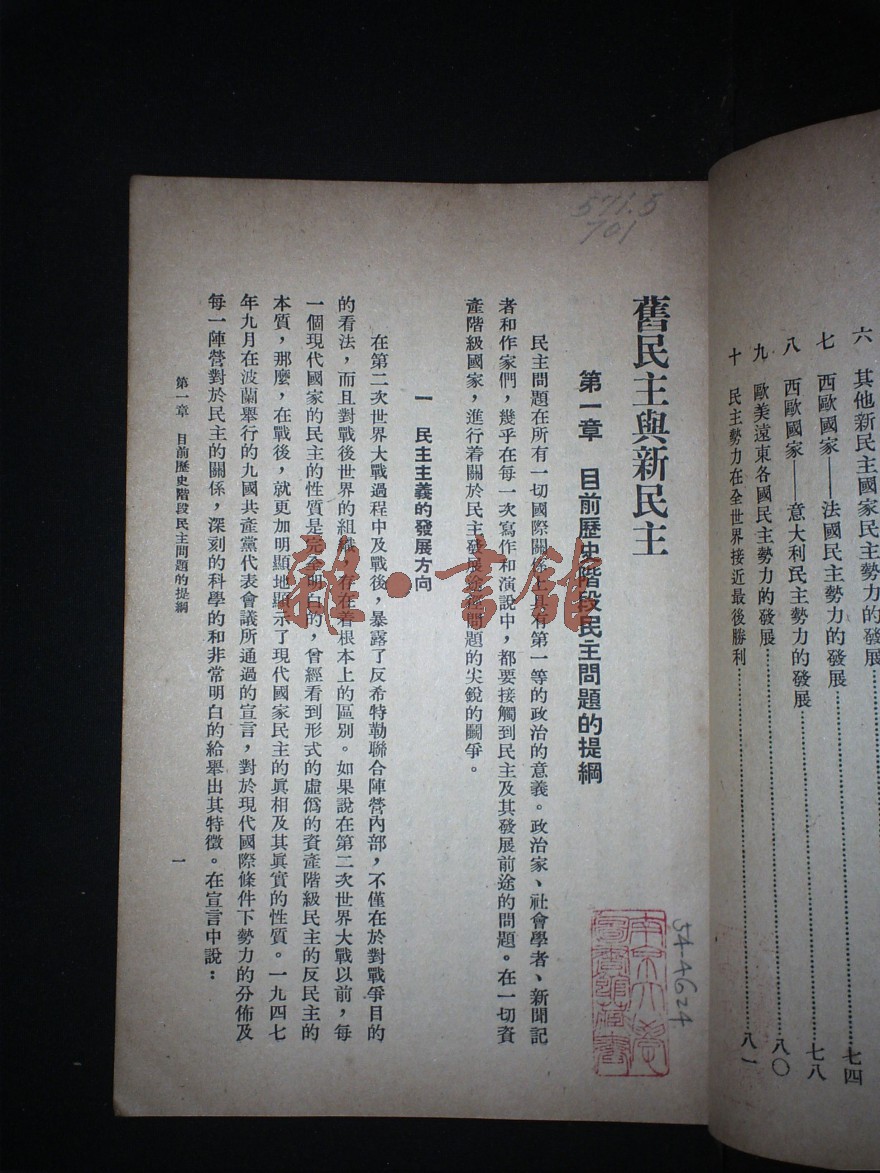 六　其他新民主國家民主勢力的發展……七四
七　西歐國家——法國民主勢力的發展……七八
八　西歐國家——意大利民主勢力的發展……八〇
九　歐美遠東各國民主勢力的發展……八一
十　民主勢力在全世界接近最後勝利……
571.5
701
舊民主與新民主
第一章　目前歷史階段民主問題的提綱
民主問題在所有一切國際關係上具有第一等的政治的意義。政治家、社會學者、新聞記
者和作家們，幾乎在每一次寫作和演說中，都要接觸到民主及其發展前途的問題。在一切資
產階級國家，進行着關於民主發展途徑問題的尖銳的鬭爭。
一　民主主義的發展方向
在第二次世界大戰過程中及戰後，暴露了反希特勒聯合陣營內部，不僅在於對戰爭目的
的看法，而且對戰後世界的組織，存在着根本上的區別。如果說在第二次世界大戰以前，每
一個現代國家的民主的性質是完全明白的，曾經看到形式的虛僞的資產階級民主的反民主的
本質，那麼，在戰後，就更加明顯地顯示了現代國家民主的眞相及其眞實的性質。一九四七
年九月在波蘭舉行的九國共產黨代表會議所通過的宣言，對於現代國際條件下勢力的分佈及
每一陣營對於民主的關係，深刻的科學的和非常明白的給舉出其特徵。在宣言中說：
第一章　目前歷史階段民主問題的提綱
一
54-4624
南京大學
圖書館藏書
龍·書館